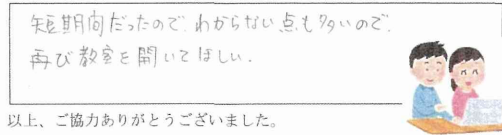 短期間だったので、わからない点も多いので、
再び教室を開いてほしい.
以上、ご協力ありがとうございました。